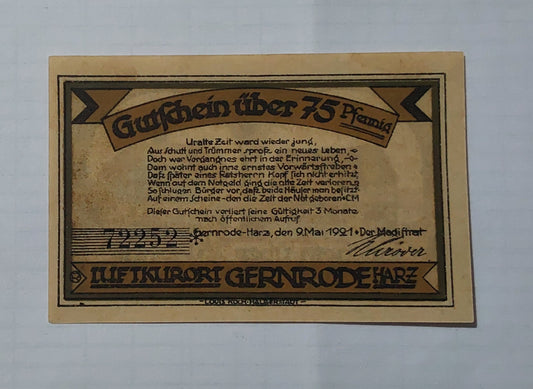 Gutschein über 75 Pfennig
Uralte Zeit ward wieder jung,
Aus Schutt und Trümmer sproß ein neues Leben
Doch wer Vorgangnes ehrt in der Erinnerung,
Dem wohnt auch inne ernstes Vorwärtsstreben
Daß später eines Ratsherrn Kopf sich nicht erhitzt,
Wenn auf dem Notgeld ging die alte Zeit verloren,
So schlugen Bürger vor, daß beide Häuser man besitzt
Auf einem Scheine - den die Zeit der Not geboren • CM
Dieser Gutschein verliert seine Gültigkeit 3 Monate
nach öffentlichem Aufruf
72252 * Gernrode-Harz, den 9. Mai 1921 • Der Magistrat
LUFTKURORT GERNRODE HARZ
LOUIS KOCH · HALBERSTADT